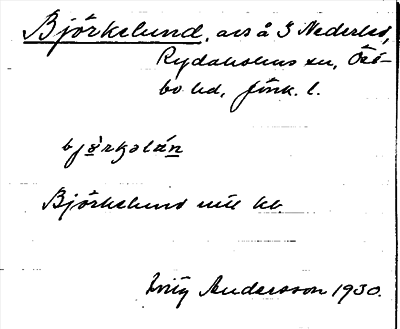 Björkelund, avs å 3 Nederled,
Rydaholms sn, Öst-
bo hd, Jönk. l.
bjö̱rkəláṉ
Björkelund utt kb.
Stig Andersson 1930.